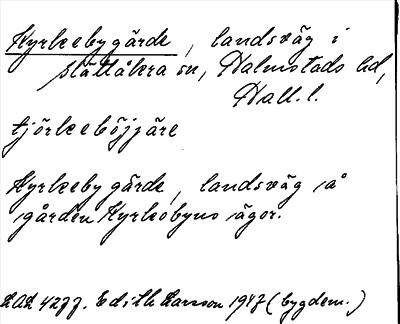 Kyrkebygärde, landsväg i
slättåkra sn, Halmstads hd,
Hall. l.
tjörkeböjjäre
Kyrkebygärde, landsväg å
gården Kyrkobyns ägor.
LAL 4277. Edith Larsson 1947 (bygdem.)